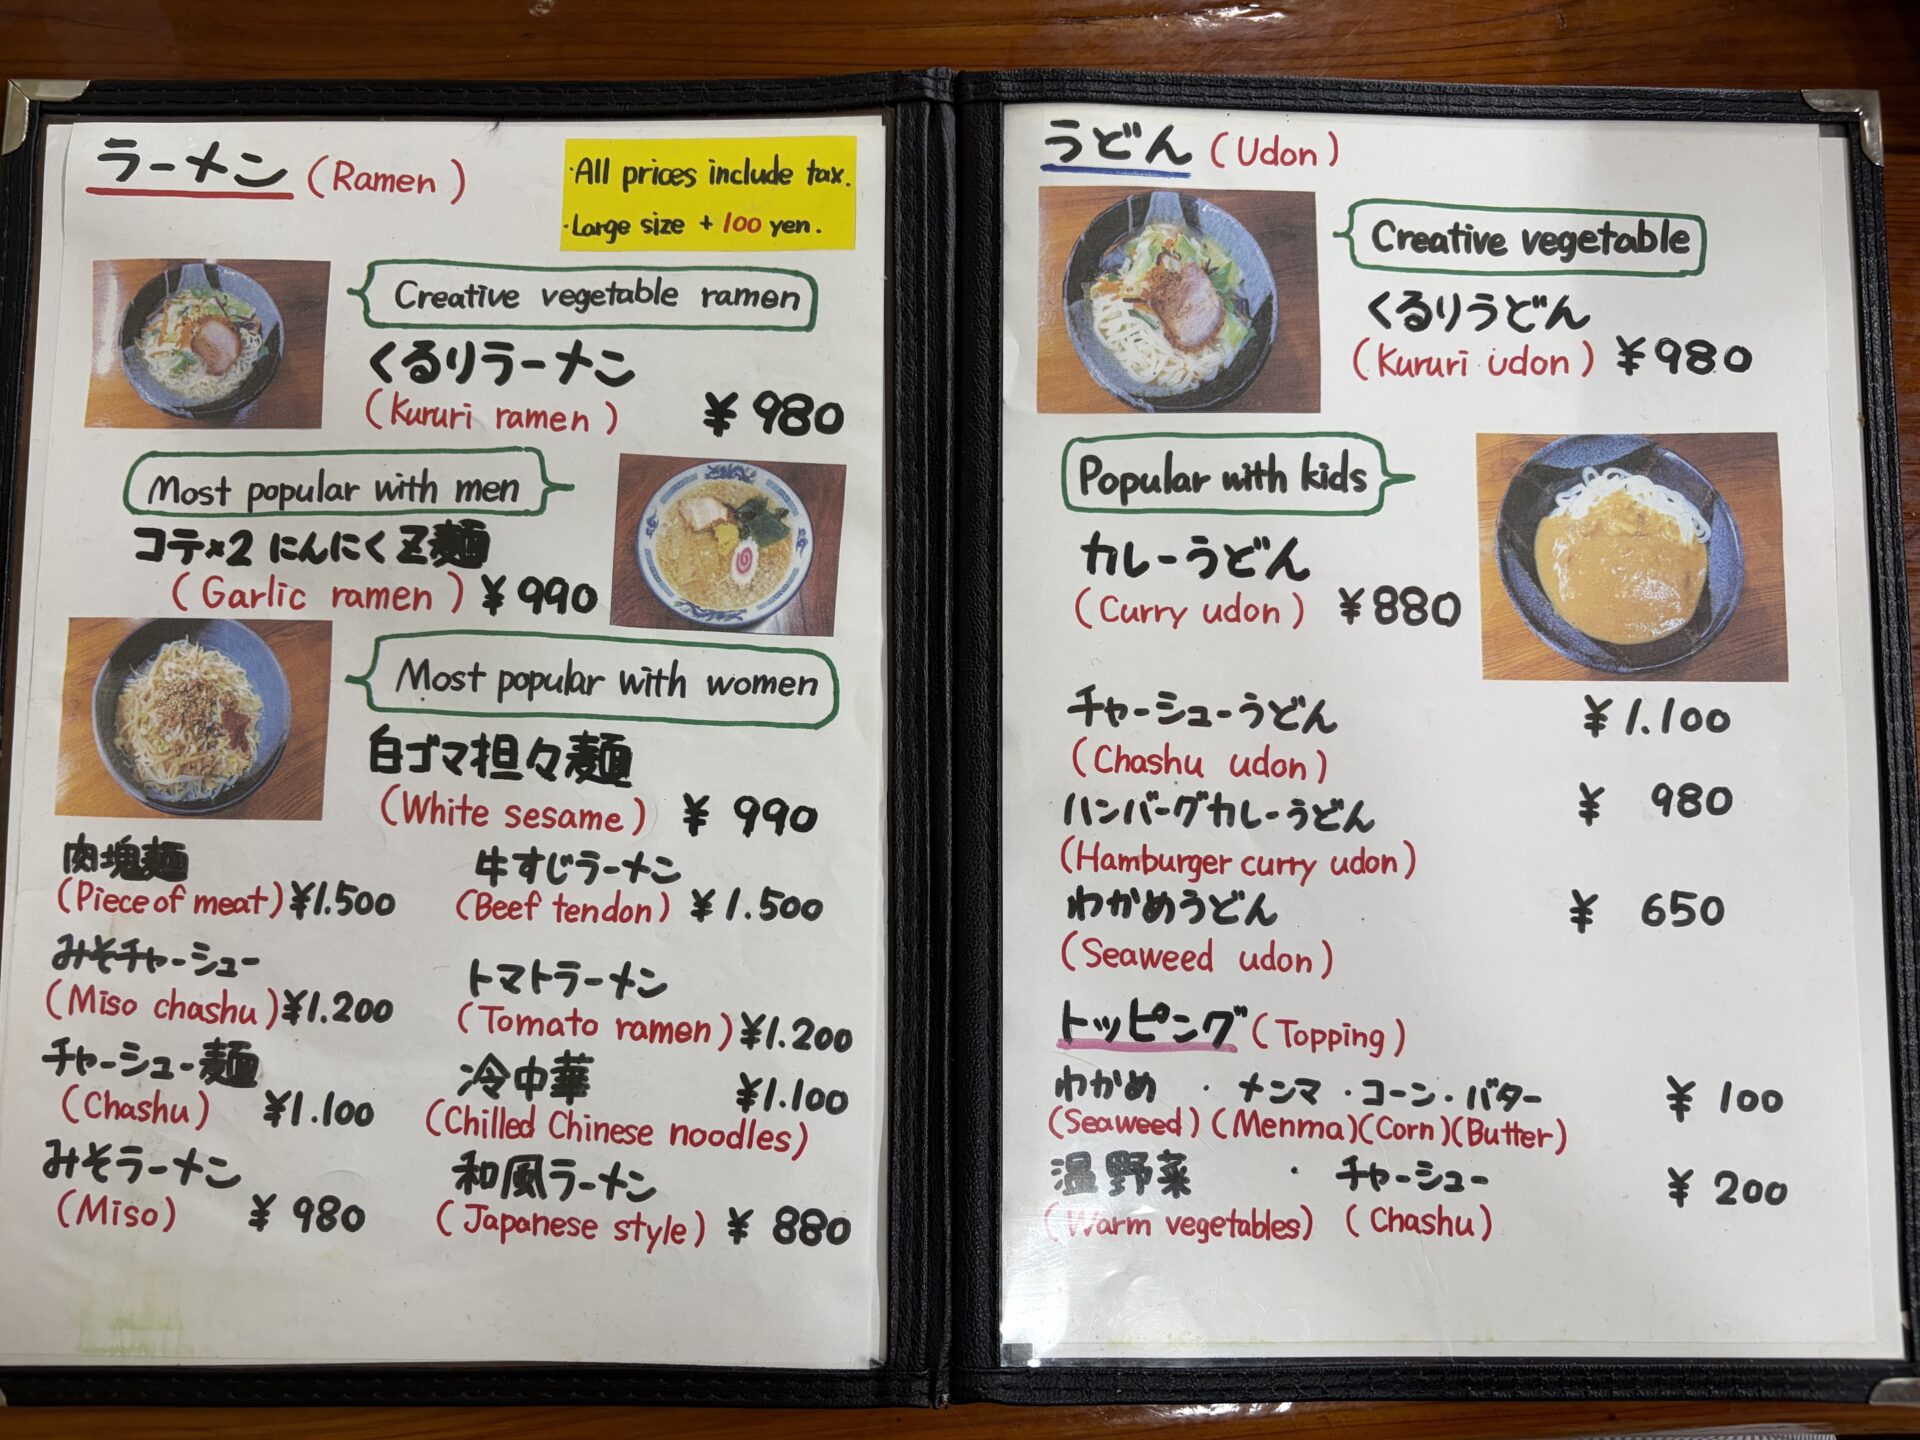 ラーメン (Ramen)
・All prices include tax.
・Large size + 100 yen.
Creative vegetable ramen
くるりラーメン
(Kururi ramen) ¥980
Most popular with men
コテ×2 にんにくZ麺
(Garlic ramen) ¥990
Most popular with women
白ゴマ担々麺
(White sesame) ¥990
肉塊麺
(Piece of meat) ¥1.500
みそチャーシュー
(Miso chashu) ¥1.200
チャーシュー麺
(Chashu) ¥1.100
みそラーメン
(Miso) ¥980
牛すじラーメン
(Beef tendon) ¥1.500
トマトラーメン
(Tomato ramen) ¥1.200
冷中華 ¥1.100
(Chilled Chinese noodles)
和風ラーメン
(Japanese style) ¥880
うどん (Udon)
Creative vegetable
くるりうどん
(Kururi udon) ¥980
Popular with kids
カレーうどん
(Curry udon) ¥880
チャーシューうどん ¥1.100
(Chashu udon)
ハンバーグカレーうどん ¥980
(Hamburger curry udon)
わかめうどん ¥650
(Seaweed udon)
トッピング (Topping)
わかめ ・メンマ・コーン・バター ¥100
(Seaweed) (Menma) (Corn) (Butter)
温野菜 ・チャーシュー ¥200
(Warm vegetables) (Chashu)